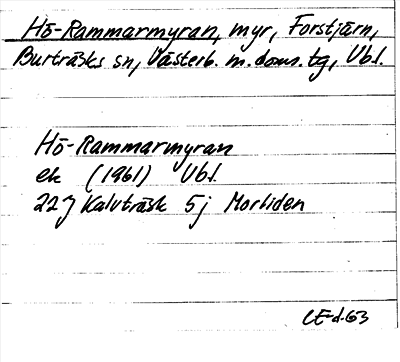 Hö-Rammarmyran, myr, Forstjärn,
Burträsks sn, Västerb. m. doms. tg, Vbl.
Hö-Rammarmyran
ek (1961) Vbl.
22J Kalvträsk 5j Morliden
CE-d-63